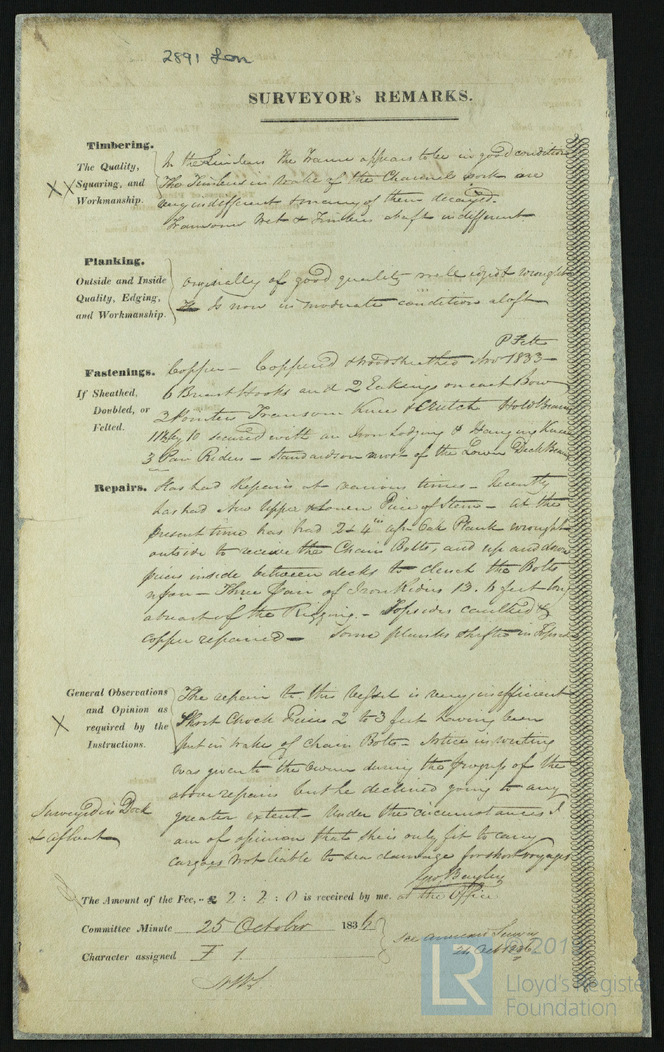 2891 Lon
SURVEYOR's REMARKS.
Timbering.
The Quality,
Squaring, and
Workmanship.
In the Limbers the Frame appears to be in good condition
The Timbers in wake of the Channels &c are
very indifferent & many of them decayed.
Transoms & Timbers abaft indifferent
XX
Planking.
Outside and Inside
Quality, Edging,
and Workmanship.
originally of good quality well edged & wrought
Is now in moderate condition aloft
Fastenings.
If Sheathed,
Doubled, or
Felted.
P Felt
Copper – Coppered & wood sheathed Nov 1833 –
6 Breast Hooks and 2 Eakings on each Bow
2 Pointers Transom Knees & Crutch Hold Beams
10 secured with an Iron Lodging & Hanging Knee
3 Pair Riders – Standards on most of the Lower Deck Beams
Repairs.
Has had Repairs at various times – Recently
has had New Upper & Lower Piece of Stem – At the
present time has had 2 & 4 Oak Plank wrought
outside to receive the Chain Bolts, and up and down
pieces inside between decks to clench the Bolts
upon – Three Pair of Iron Riders 13.6 feet long
abreast of the Rigging – Topsides caulked &
copper repaired – Some planks shifted in Topsides
General Observations
and Opinion as
required by the
Instructions.
X
The repair to this Vessel is very insufficient
Short Chock Pieces 2 to 3 feet having been
put in wake of Chain Bolts – Notice in writing
was given to the Owner during the progress of the
above repairs but he declined going to any
greater extent – Under the circumstances I
am of opinion that she is only fit to carry
cargoes not liable to sea damage for short voyages
Surveyed in Dock
& afloat
Geo Bayley
The Amount of the Fee, £ 2 : 2 : 0 is received by me. at the Office
Committee Minute 25 October 1836
Character assigned I 1
See Survey
24 Oct 1836
© 201
LR
Lloyd's Register
Foundation